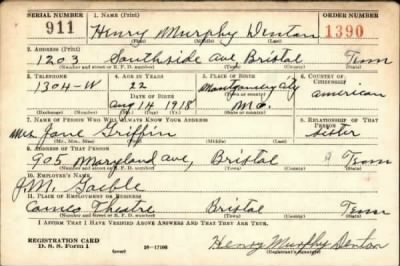 SERIAL NUMBER 1. NAME (Print) ORDER NUMBER
911 Henry Murphy Denton 1390
(First) (Middle) (Last)
2. ADDRESS (Print)
1203 Southside Ave Bristol Tenn
(Number and street or R. F. D. number) (Town) (County) (State)
3. TELEPHONE 4. AGE IN YEARS 5. PLACE OF BIRTH 6. COUNTRY OF CITIZENSHIP
1304-W 22 Montgomery City American
DATE OF BIRTH
Aug 14 1918 Mo.
(Exchange) (No.) (Mo.) (Day) (Yr.) (State or country)
7. NAME OF PERSON WHO WILL ALWAYS KNOW YOUR ADDRESS 8. RELATIONSHIP OF THAT PERSON
Mrs Jane Griffin Sister
(Mr., Mrs., Miss) (First) (Middle) (Last)
9. ADDRESS OF THAT PERSON
905 Maryland Ave, Bristol Tenn
(Number and street or R. F. D. number) (Town) (County) (State)
10. EMPLOYER'S NAME
J.M. Goeble
11. PLACE OF EMPLOYMENT OR BUSINESS
Cameo Theatre Bristol Tenn
(Number and street or R. F. D. number) (Town) (County) (State)
I AFFIRM THAT I HAVE VERIFIED ABOVE ANSWERS AND THAT THEY ARE TRUE.
REGISTRATION CARD
D. S. S. Form 1 (over) 16-17105 Henry Murphy Denton
(Registrant's signature)